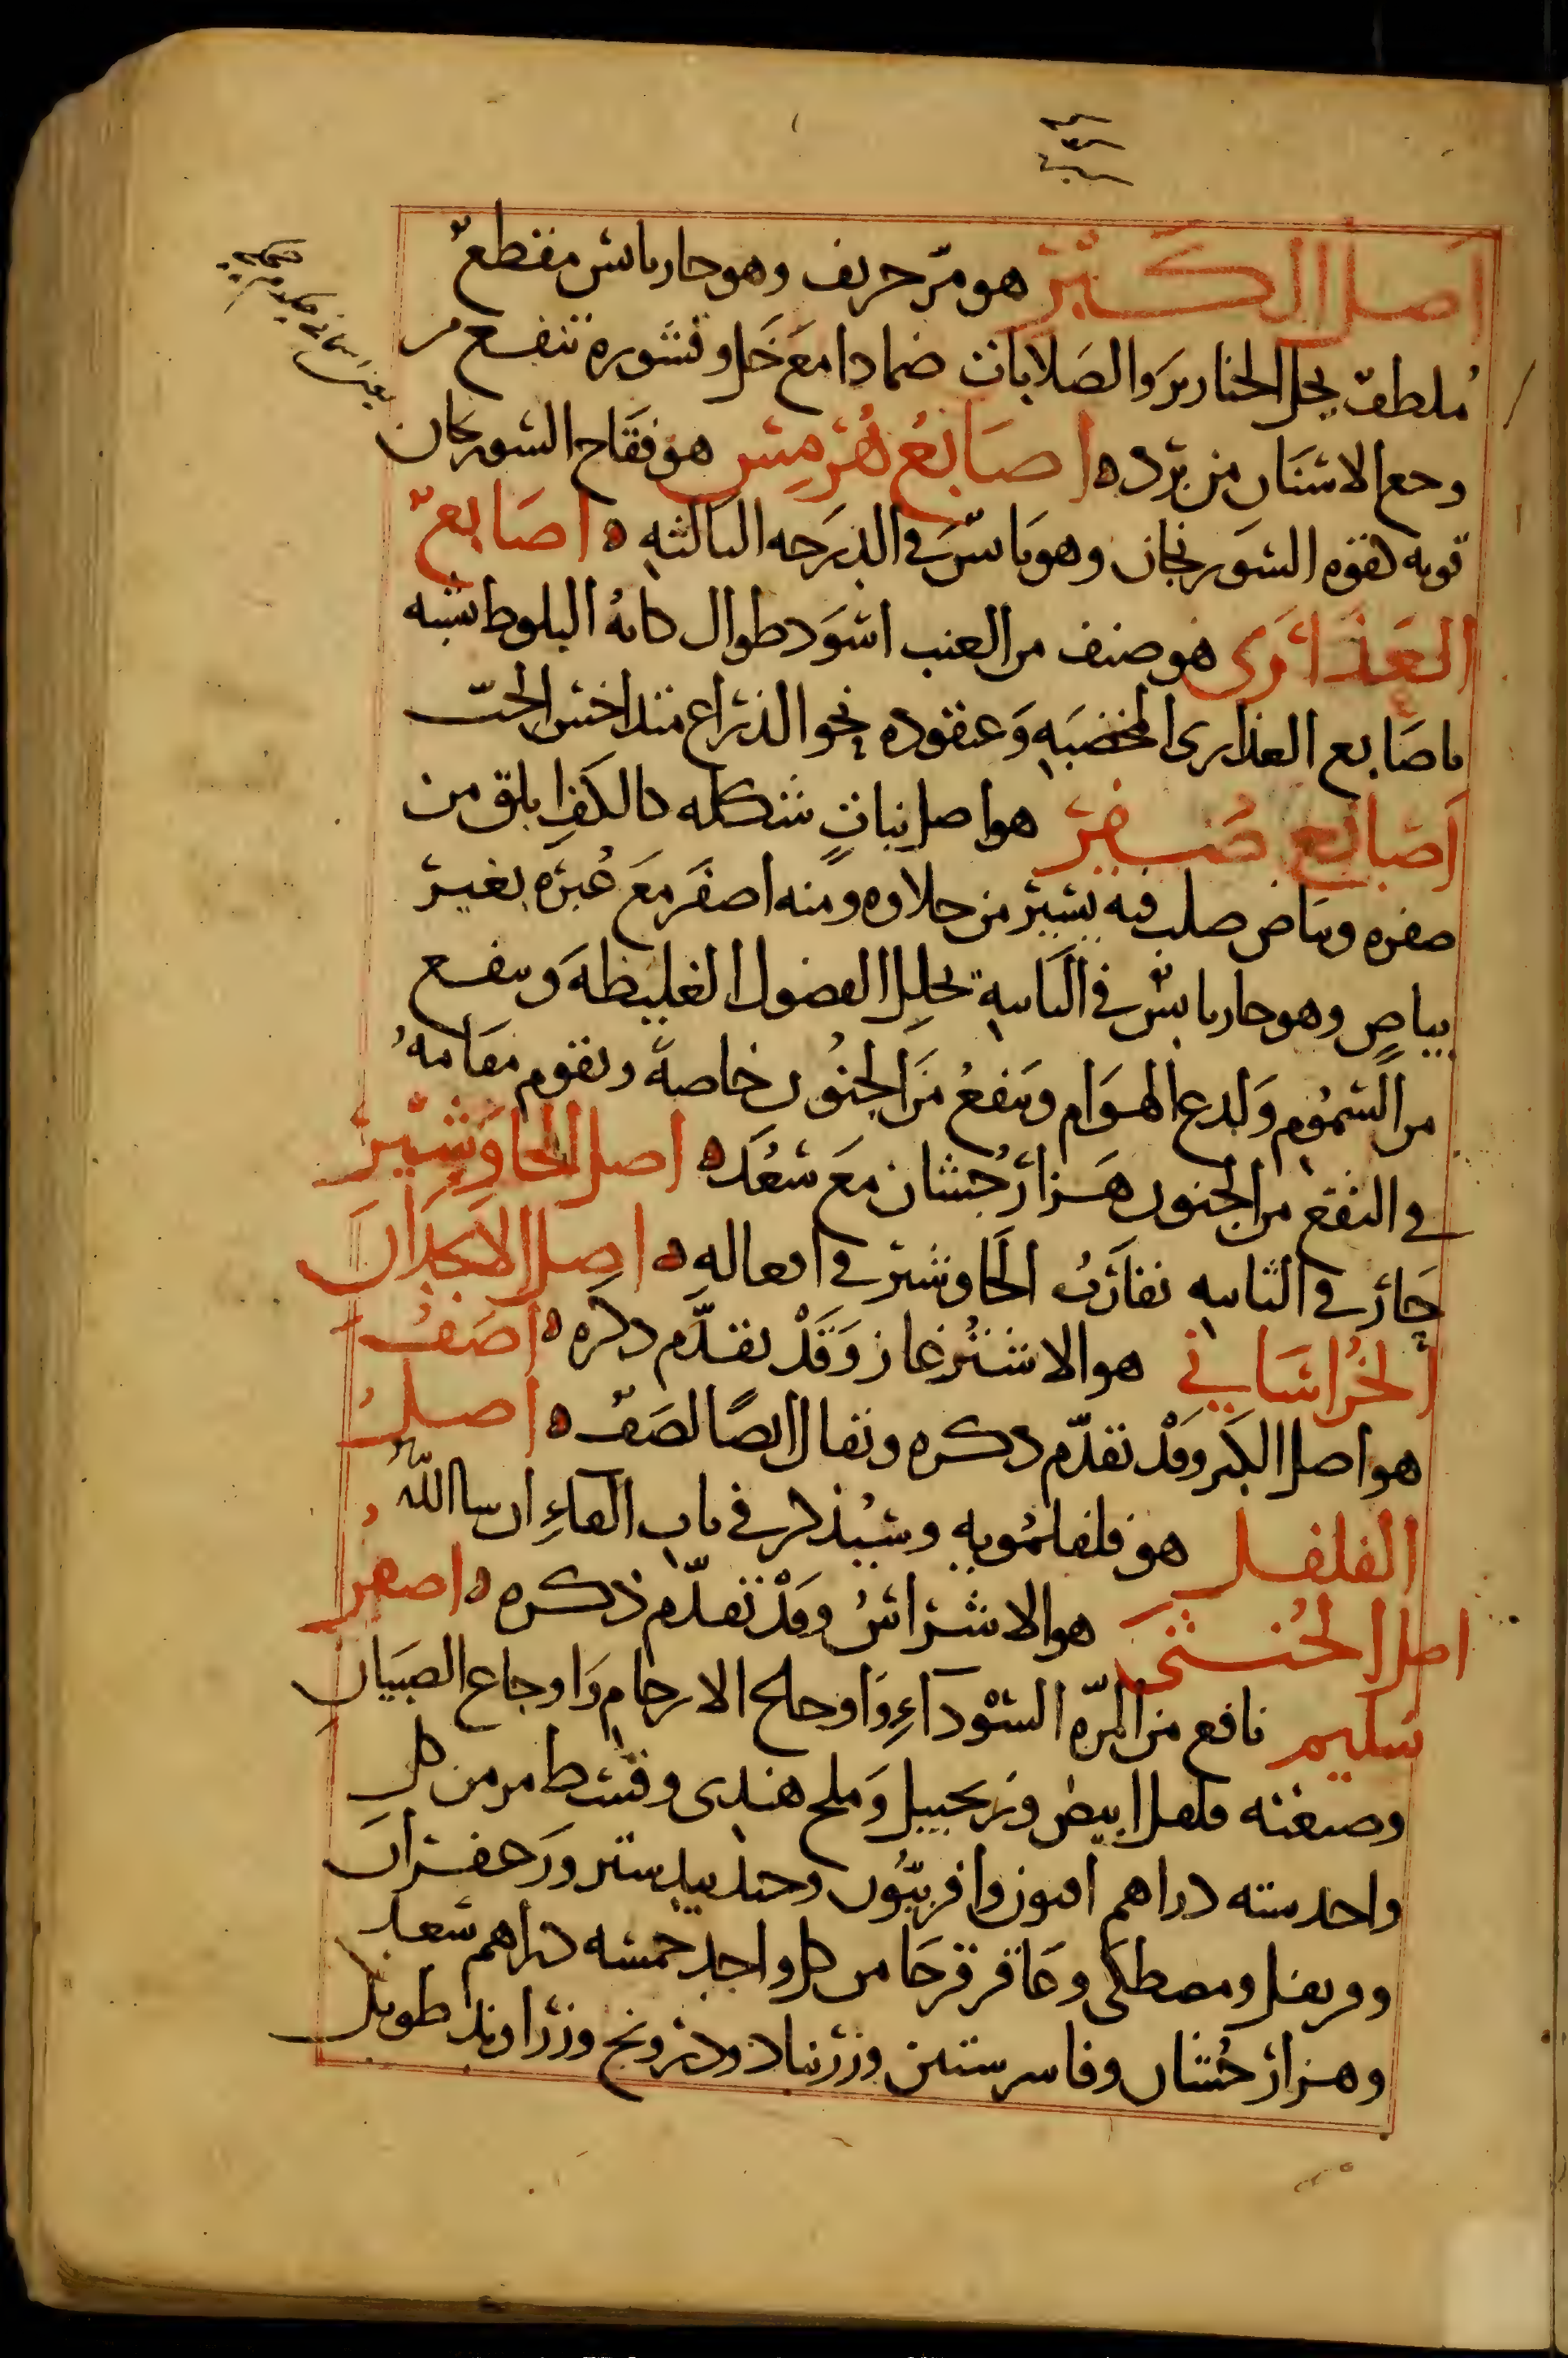 اصل الكبر هو مرّ حريف وهو حار يابس مقطع
مُلطف يحل الخنازير والصلابات ضمادا مَع خَل وقشوره تنفع من
وجع الاسنان من برد ه اصابعُ هُرمِس هو فقاح السورنجان
قوته كقوة السورنجان وهو يابسٌ في الدرَجه الثالثه ه اصَابع
العَذارَى هو صنف من العنب اسوَد طوال كانهُ البلوط شبه
باصَابع العذارى المخضبَه وَعنقوده نحو الذراع متداخس الحبّ
اَصَابع صُفر هو اصل نباتٍ شكله كالكفِ ابلق من
صفره وبيَاض صلب فيه يسير من حلاوه ومنه اصفَر مَعَ غُبرَه بغير
بياضٍ وهو حار يابسٌ في الثانيه تحلِل الفضول الغليظهَ وينفع
من السمُوم وَلدغ الهوَام وَينفعُ مَنَ الجنُون خاصةً ويقوم مقَامَهُ
في النفع من الجنون هَزارجُشان مَع سُعَد ه اصل الجاوَشير
حَار في الثانيه يقارَبُ الجَاوشير في افعاله ه اصل الانجدَان
الخرُاسَاني هو الاشترغاز وَقَدْ تقدّم ذكره ه اصَفُ
هو اصل الكَبر وقَدْ تقدّم ذكره ويقال ايضًا لصَف ه اصلُ
الفلفل هو فلفلمُويه وسيُذكر في باب الفاءِ ان سا اللهُ
اصل الخُنثى هو الاشراسُ وقَدْ تقدّم ذكره ه اصفرُ
سَليم نافع من المرّه السَوْدآءِ وَاوجاع الارحام وَاوجاع الصبيَانِ
وصفته فلفل ابيض وزنجبيل وَملح هندى وقسط مر من كل
واحد سته دراهم افيون وافربيُون وجندبيدستر وزَعفرَان
وقرنفل ومصطكى وعَاقر قرحَا من كل واحد خمسه دراهم سُعد
وهزارجُشان وفاسرستين وزرنباد ودرونج وزراوند طويل